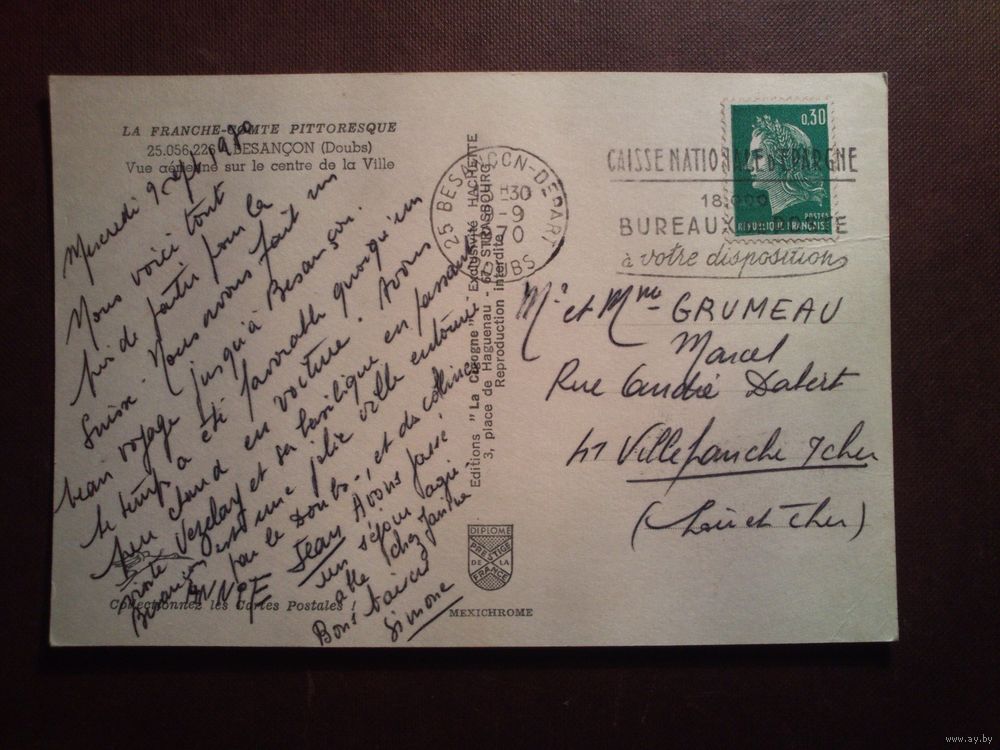 LA FRANCHE-COMTE PITTORESQUE
25.056.226 BESANÇON (Doubs)
Vue aérienne sur le centre de la Ville
Mercredi 9 sept 1970
Nous voici tout
près de partir pour la
Suisse. Nous avons fait un
beau voyage jusqu'à Besançon.
le temps a été favorable quoiqu'un
peu chaud en voiture. Avons
visité Vezelay et sa basilique en passant
Besançon est une jolie ville entourée
par le Doubs, et des collines
ANNIE Jean Avons passé
un séjour agré-
able chez Janine
Bons baisers
Simone
Collectionnez les Cartes Postales !
Editions "La Cigogne" Exclusivité HACHETTE
3, place de Haguenau - 67 STRASBOURG
Reproduction interdite
DIPLOME
PRESTIGE
DE LA
FRANCE
MEXICHROME
25 BESANCON-DEPART
H30
-9
1970
DOUBS
CAISSE NATIONALE D'EPARGNE
18.000
BUREAUX DE POSTE
à votre disposition
0,30
POSTES
REPUBLIQUE FRANÇAISE
Mr et Mme GRUMEAU
Marcel
Rue André Dabert
41 Villefranche s/cher
(Loir et Cher)
www.ay.by